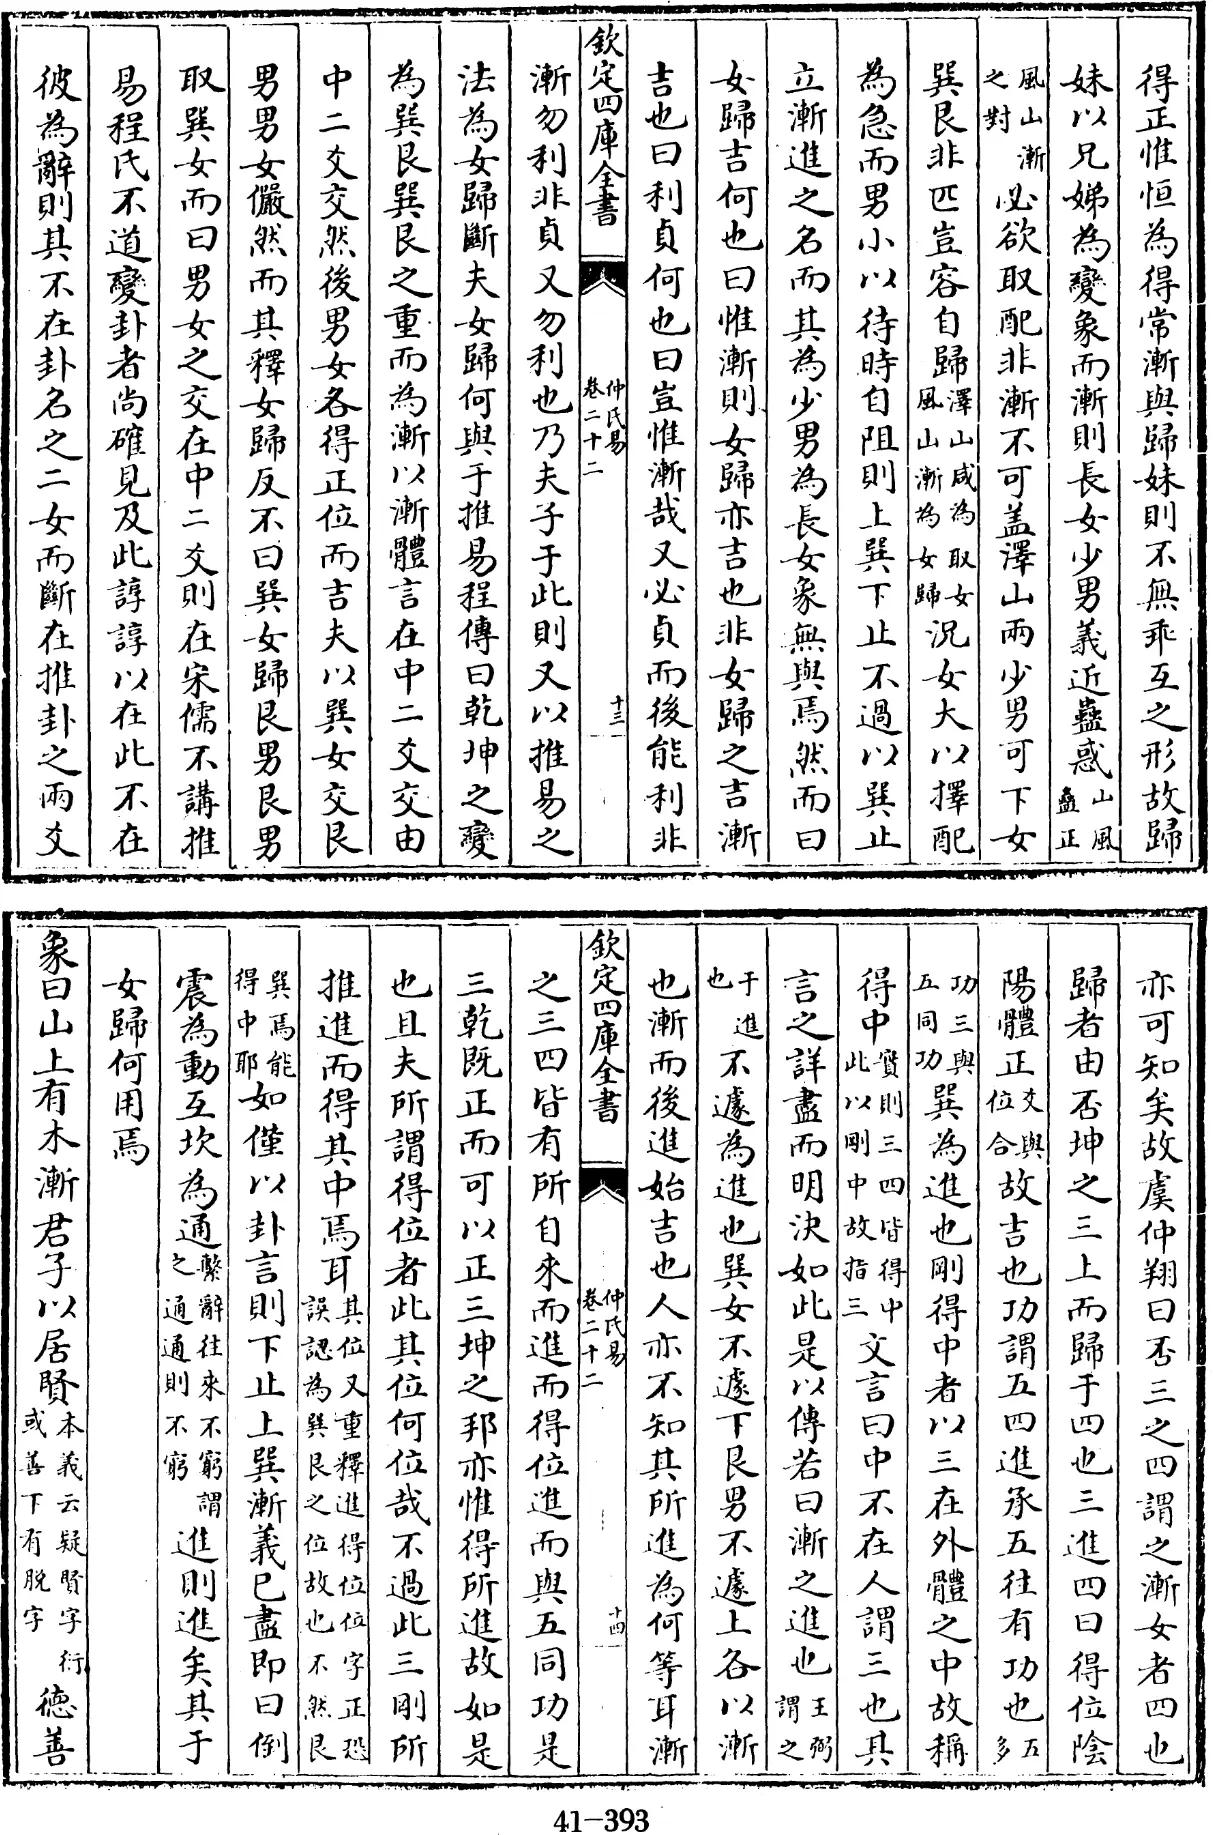 得正惟恒為得常漸與歸妹則不無乖互之形故歸
妹以兄娣為變象而漸則長女少男義近蠱惑山風蠱正
風山漸之對必欲取配非漸不可盖澤山兩少男可下女
巽艮非匹豈容自歸澤山咸為取女風山漸為女歸況女大以擇配
為急而男小以待時自阻則上巽下止不過以巽止
立漸進之名而其為少男為長女象無與焉然而曰
女歸吉何也曰惟漸則女歸亦吉也非女歸之吉漸
吉也曰利貞何也曰豈惟漸哉又必貞而後能利非
欽定四庫全書 仲氏易 卷二十二 十三
漸勿利非貞又勿利也乃夫子于此則又以推易之
法為女歸斷夫女歸何與于推易程傳曰乾坤之變
為巽艮巽艮之重而為漸以漸體言在中二爻交由
中二爻交然後男女各得正位而吉夫以巽女交艮
男男女儼然而其釋女歸反不曰巽女歸艮男艮男
取巽女而曰男女之交在中二爻則在宋儒不講推
易程氏不道變卦者尚確見及此諄諄以在此不在
彼為辭則其不在卦名之二女而斷在推卦之兩爻
亦可知矣故虞仲翔曰否三之四謂之漸女者四也
歸者由否坤之三上而歸于四也三進四曰得位陰
陽體正爻與位合故吉也功謂五四進承五往有功也五多
功三與五同功巽為進也剛得中者以三在外體之中故稱
得中實則三四皆得中此以剛中故指三文言曰中不在人謂三也其
言之詳盡而明決如此是以傳若曰漸之進也王弼謂之
于進也不遽為進也巽女不遽下艮男不遽上各以漸
也漸而後進始吉也人亦不知其所進為何等耳漸
欽定四庫全書 仲氏易 卷二十二 十四
之三四皆有所自來而進而得位進而與五同功是
三乾既正而可以正三坤之邦亦惟得所進故如是
也且夫所謂得位者此其位何位哉不過此三剛所
推進而得其中焉耳其位又重釋進得位位字正恐誤認為巽艮之位故也不然艮
巽焉能得中耶如僅以卦言則下止上巽漸義已盡即曰倒
震為動互坎為通繫辭往來不窮謂之通通則不窮進則進矣其于
女歸何用焉
象曰山上有木漸君子以居賢本義云疑賢字衍或善下有脫字德善
41-393